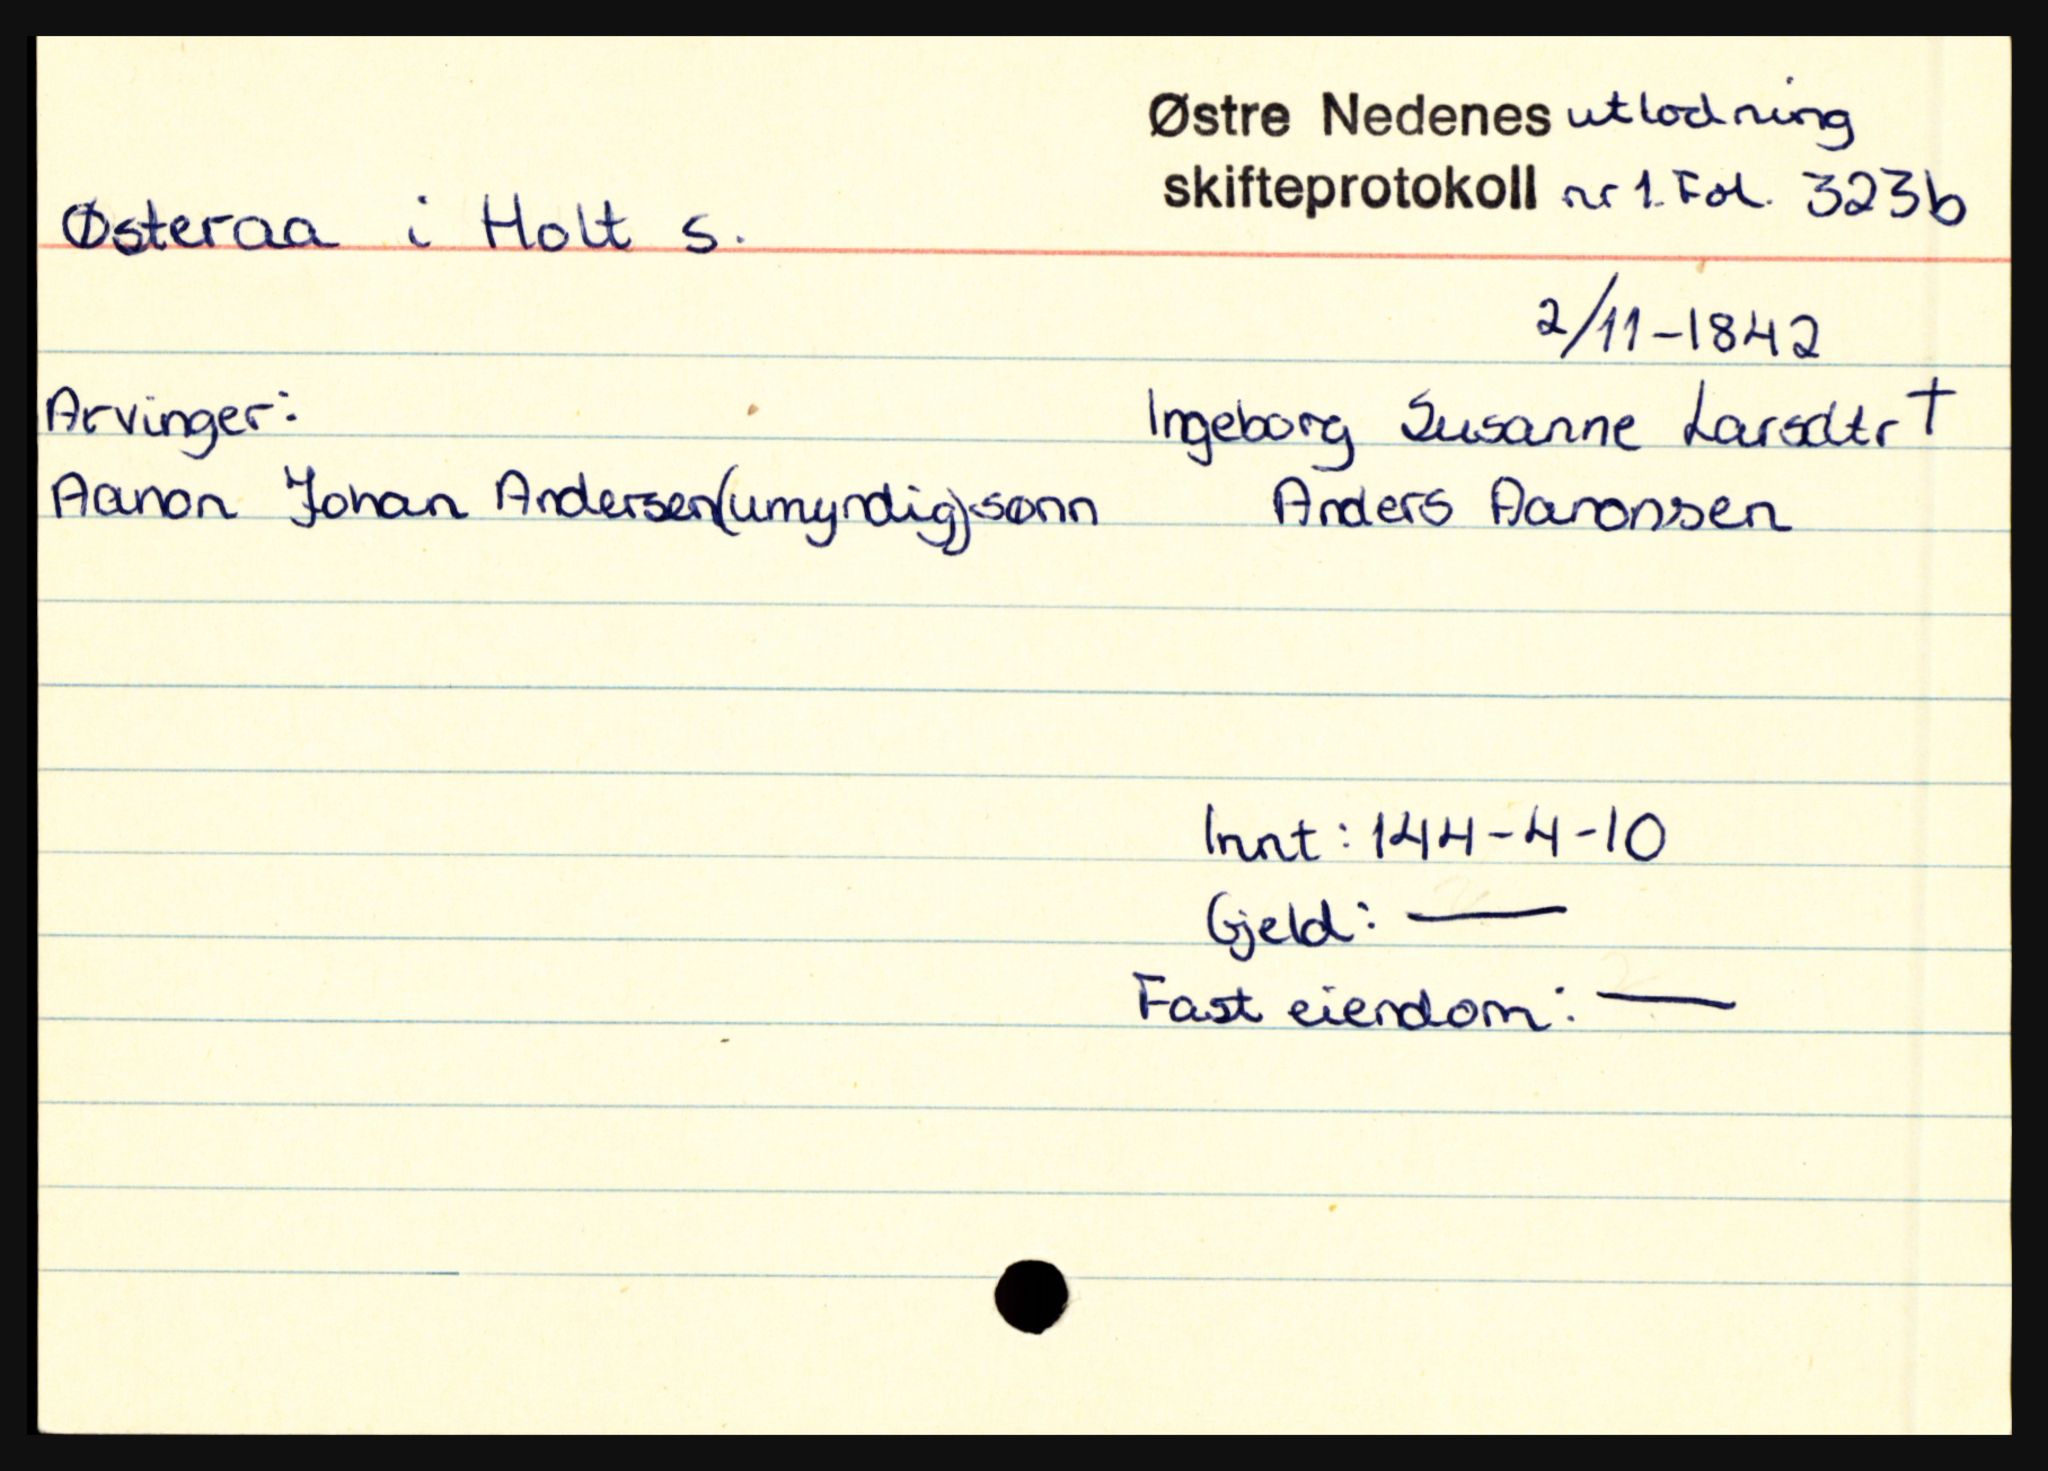 Østre Nedenes utlodning
skifteprotokoll nr 1. Fol. 323b
Østeraa i Holt s.
2/11-1842
Arvinger:
Ingeborg Susanne Larsdtr †
Aanon Johan Andersen (umyndig) sønn
Anders Aanonssen
Innt: 144-4-10
Gjeld: —
Fast eiendom: —